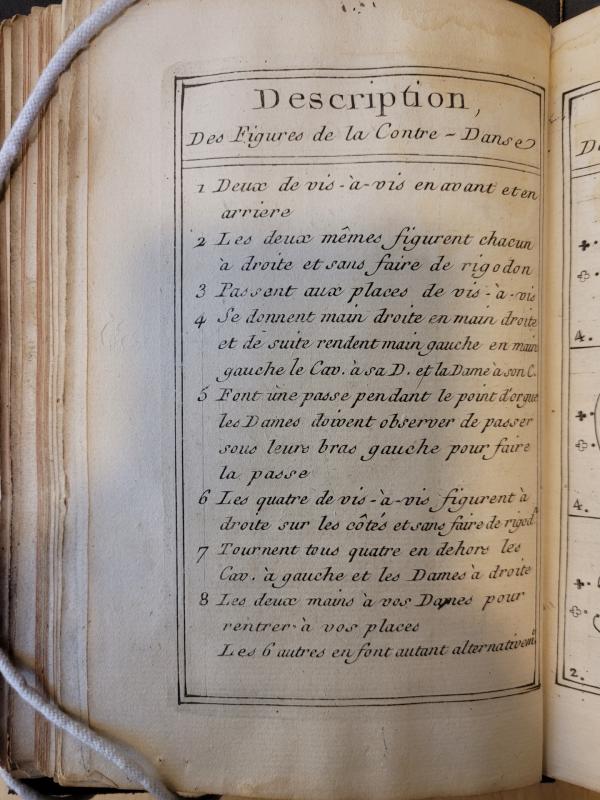 Description,
Des Figures de la Contre-Danse
1 Deux de vis-à-vis en avant et en
arriere
2 Les deux mêmes figurent chacun
à droite et sans faire de rigodon
3 Passent aux places de vis-à-vis
4 Se donnent main droite en main droite
et de suite rendent main gauche en main
gauche le Cav. à sa D. et la Dame à son C.
5 Font une passe pendant le point d'orgue
les Dames doivent observer de passer
sous leurs bras gauche pour faire
la passe
6 Les quatre de vis-à-vis figurent à
droite sur les côtés et sans faire de rigod.
7 Tournent tous quatre en dehors les
Cav. à gauche et les Dames à droite
8 Les deux mains à vos Dames pour
rentrer à vos places
Les 6 autres en font autant alternativem.t
D
4.
4.
2.